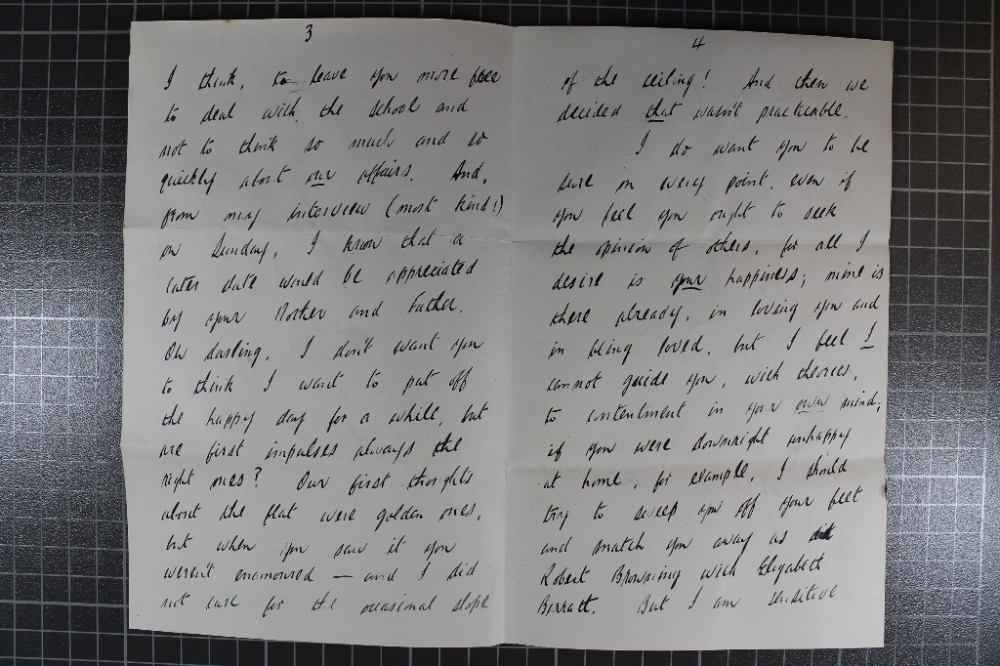 3
I think, to leave you more free
to deal with the school and
not to think so much and so
quickly about our affairs. And,
from my interview (most kind!)
on Sunday, I know that a
later date would be appreciated
by your Mother and Father.
Oh darling, I don't want you
to think I want to put off
the happy day for a while, but
are first impulses always the
right ones? Our first thoughts
about the flat were golden ones,
but when you saw it you
weren't enamoured — and I did
not care for the occasional slope
4
of the ceiling! And then we
decided that wasn't practicable.
I do want you to be
sure on every point, even if
you feel you ought to seek
the opinion of others, for all I
desire is your happiness; mine is
there already, in loving you and
in being loved, but I feel I
cannot guide you, with theories,
to contentment in your own mind;
if you were downright unhappy
at home, for example, I should
try to sweep you off your feet
and snatch you away as
Robert Browning with Elizabeth
Barratt. But I am sensitive